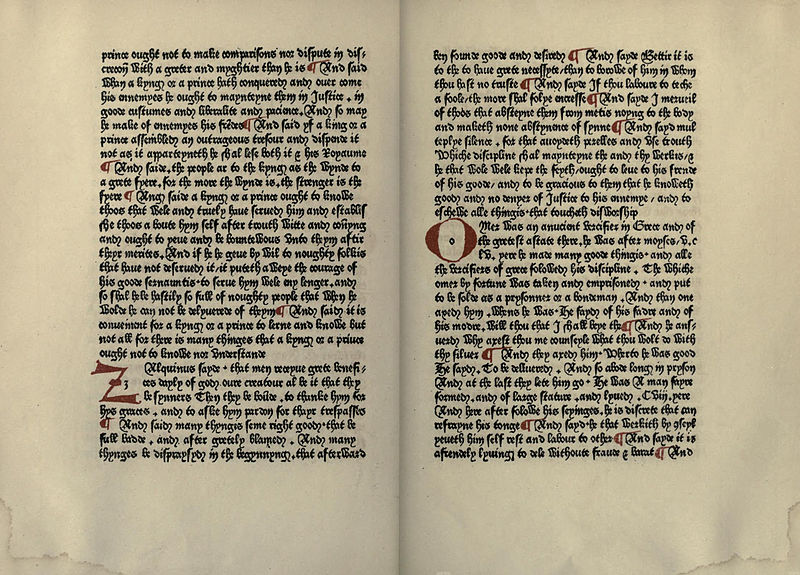 prince ought not to make comparisons nor dispute in dis-
crecon with a greter and myghtier than he is ¶ And said
whan a kyng or a prince hath conquered and over come
his ennemyes he ought to maynteyne them in Justice . in
goode custumes and liberalite and pacience. And so may
he make of ennemyes his frēdes ¶ And said yf a king or a
prince assembled an outrageous tresour and dispende it
not as it apparteyneth he shal lese both it & his Royaume
¶ And saide. the people ar to the kyng as the wynde to
a grete fyere. for the more the wynde is. the strenger is the
fyere ¶ And saide a kyng or a prince ought to knowe
thoos that wele and truely have served him and establis
she thoos a boute hym self after trouth witte and conyng
and ought to yeue and be bounteuous vnto them aftir
theyr merites. And if he be geue by wil to noughty folkis
that have not deserved it. it puteth a weye the courage of
his good seruauntis. to serve hym wele eny lenger. and
so shal he be hastily so full of noughty people that when he
wolde he can not be delyuered of theym ¶ And said it is
conuenient for a kyng or a prince to lerne and knowe but
not all for there is many thinges that a kyng or a prince
ought not to knowe nor vnderstande
ZAlquinus sayde . that men receyue grete benefi-
ces dayly of god. oure creatour al be it that they
be synners Then they be holde . to thanke hym for
hys graces . and to aske hym pardon for thayr trespasses
¶ And said. many thyngis seme right good. that be
full badde . and after gretely blamed . And many
thynges be dispraysyd in the begynnyng. that afterward
ben founde goode and desired ¶ And sayde Bettir it is
to the to have grete necessyte. than to borowe of him in whom
thou hast no truste ¶ And sayde If thou laboure to teche
a foole. the more shal folye encresse ¶ And sayde I mervuil
of thoos that absteyne them from metis noyng to the body
and maketh none abstynence of synne ¶ And sayd mul
teplye silence . for that auoydeth perelles and vse trouth
whiche discipline shal maynteyne the and thy werkis. &
he that wole wele kepe the feyth. ought to leue to his frende
of his good. and to be gracious to them that he knoweth
good. and no denyer of Justice to his ennemye . and to
eschewe alle thingis that toucheth disworship
OMer was an auncient versifier in Grece and of
the gretest astate there. he was after moyses. v. c
lv. yere he made many good thingis. and alle
the versifiers of grece folowed his discipline . The whiche
omer by fortune was taken and emprisoned . and put
to be solde as a prysonner or a bondeman . And than one
axed hym . whens he was. He sayde of his fadre and of
his modre. will thou that I shall bye the ¶ And he ans-
uerd why axest thou me counseyle what thou wolt do with
thy siluer ¶ And they axed him. wherto he was good
He sayde. To be deliuered . And so abode long in pryson
And at the last they lete him go. He was A man fayre
formed. and of large stature . and lyued . Cviij. yere
And here after folowe his seyinges. he is discrete that can
refrayne his tonge ¶ And sayd. he that werkith by counseyl
yeueth him self rest and labour to other ¶ And sayde it is
a frendely lyuing to dele withoute fraude & barat ¶ And